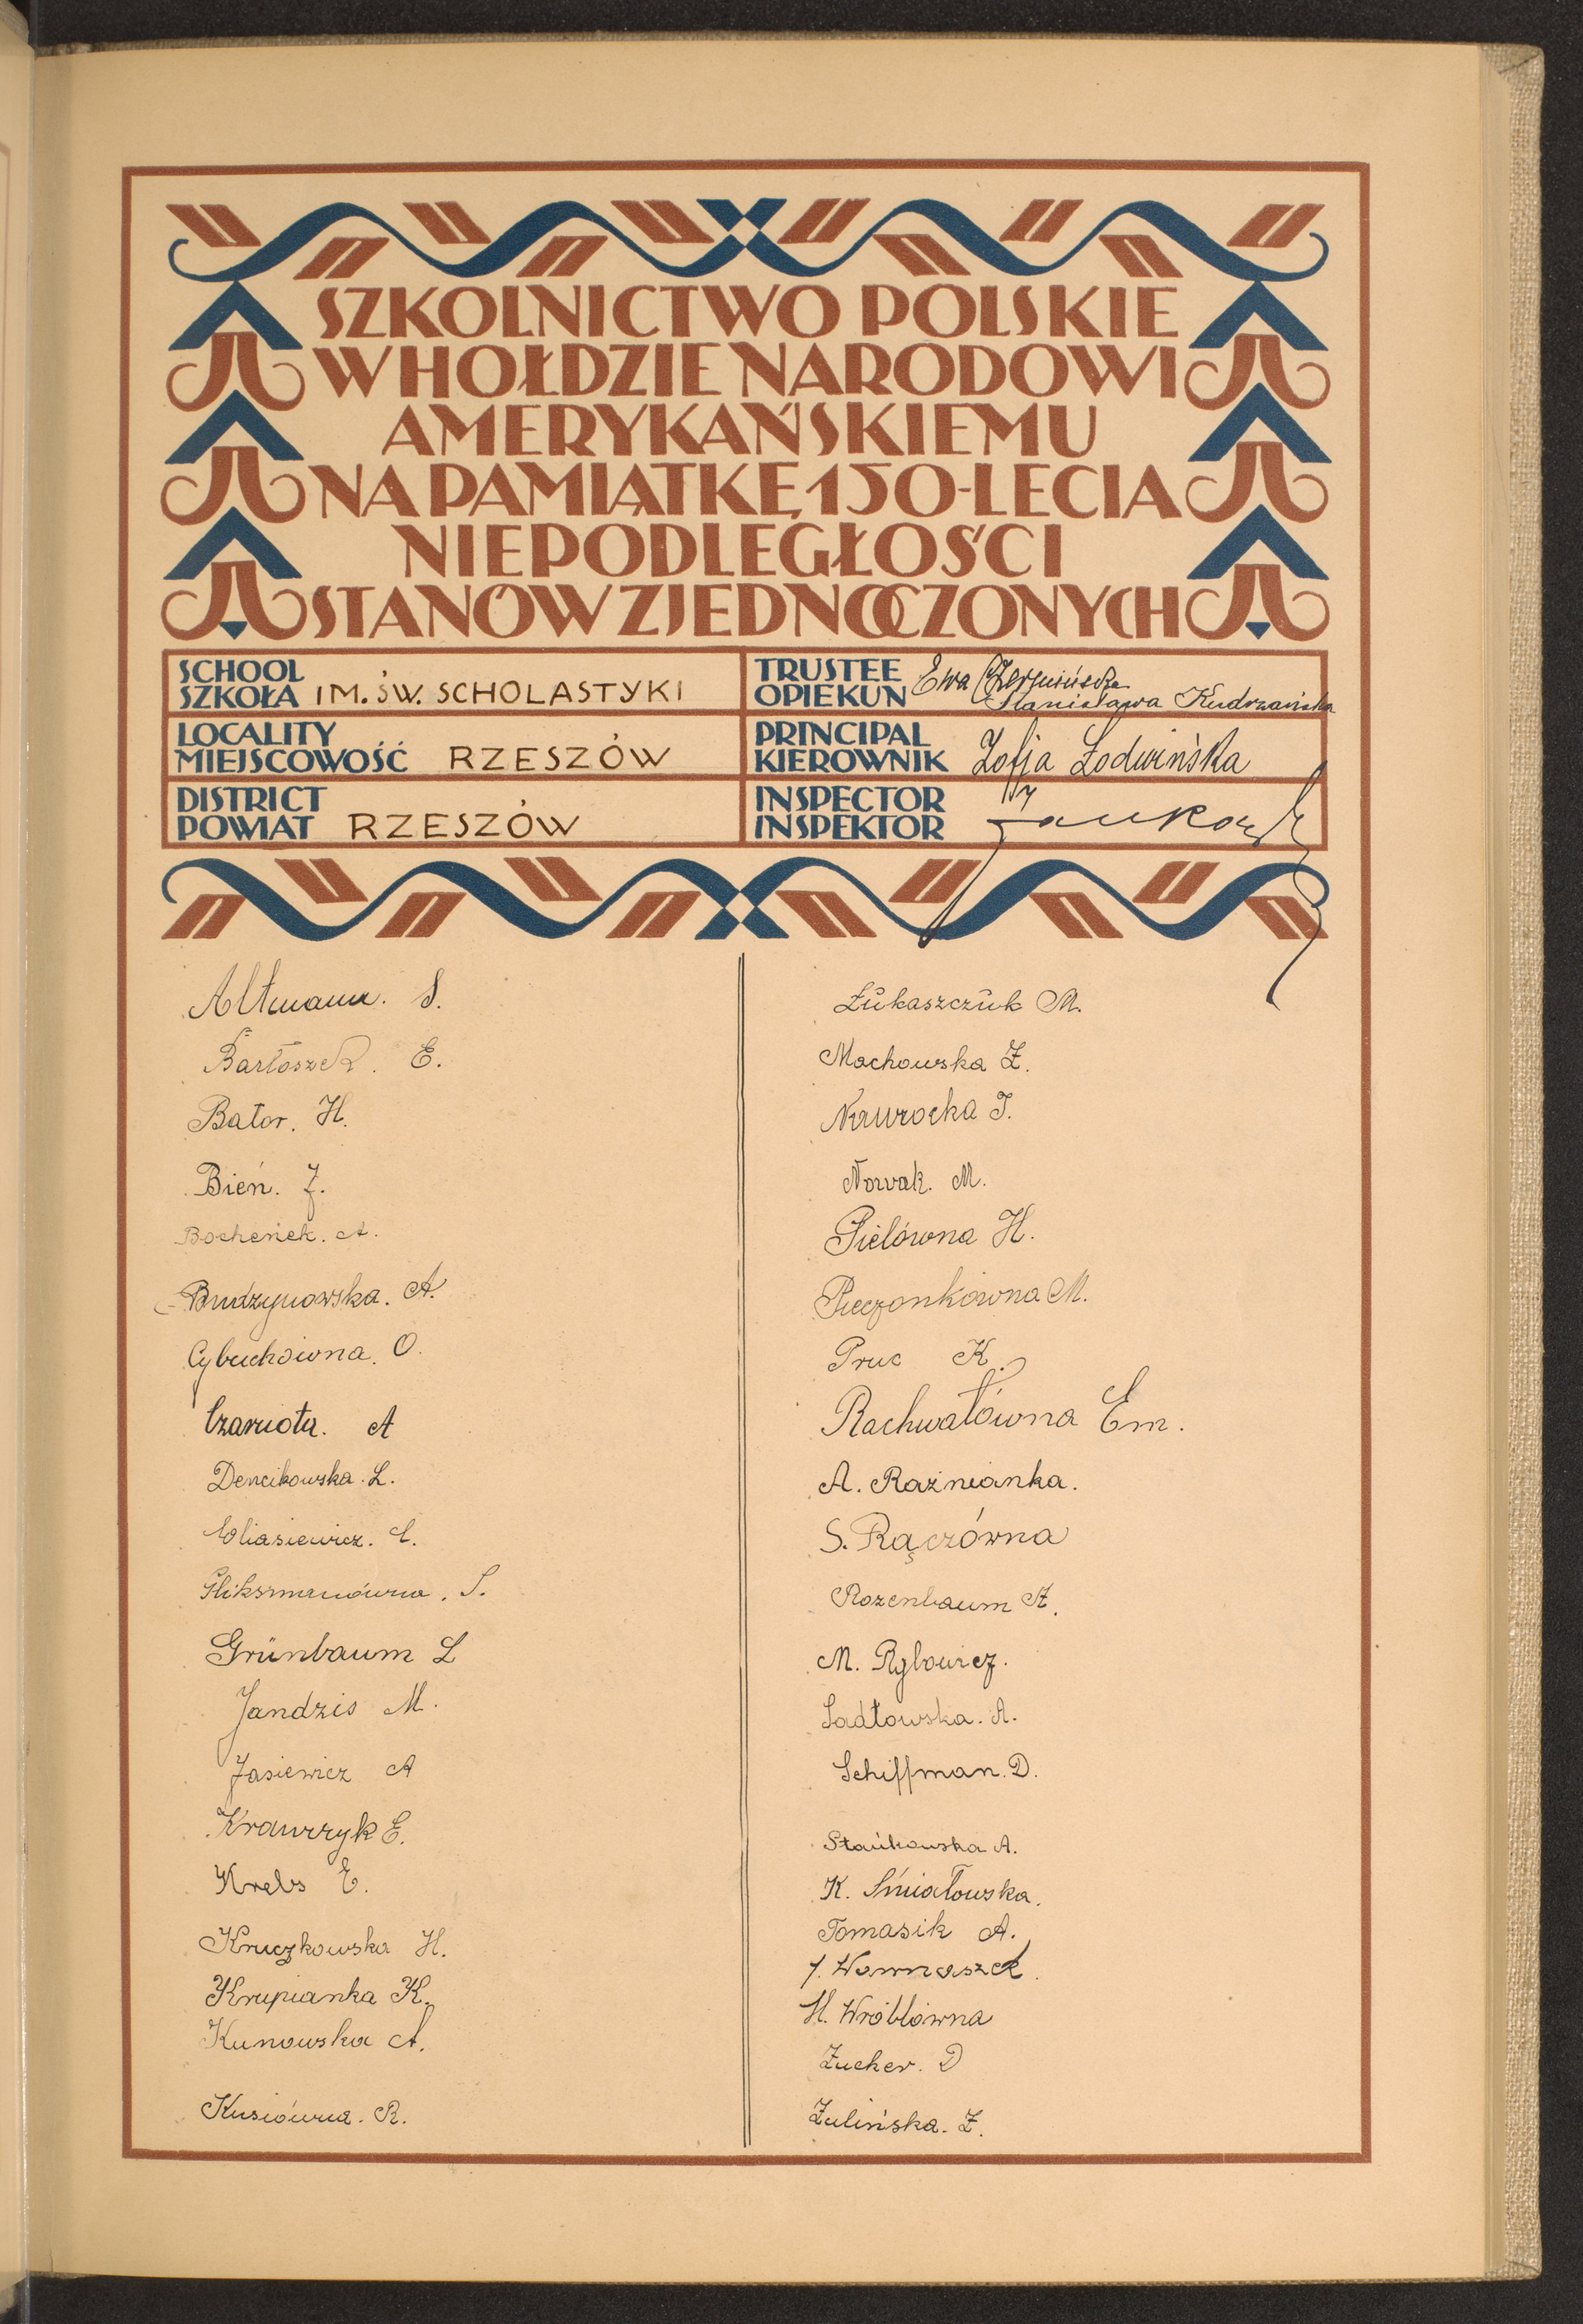 SZKOLNICTWO POLSKIE
W HOŁDZIE NARODOWI
AMERYKAŃSKIEMU
NA PAMIĄTKĘ 150-LECIA
NIEPODLEGŁOŚCI
STANÓW ZJEDNOCZONYCH
SCHOOL
SZKOŁA IM. ŚW. SCHOLASTYKI
TRUSTEE
OPIEKUN Ewa
Stanisława
LOCALITY
MIEJSCOWOŚĆ RZESZÓW
PRINCIPAL
KIEROWNIK Zofja Łodwińska
DISTRICT
POWIAT RZESZÓW
INSPECTOR
INSPEKTOR
Altmann. S.
Bartoszek. E.
Bator. H.
Bień. J.
Bochenek. A.
Budzynowska. A.
Cybuchówna. O.
Czarnota. A
Dencikowska. L.
Eliasiewicz. E.
Gliksmanówna. S.
Grünbaum L
Jandzis M.
Jasiewicz A
Krawczyk E.
Krebs E.
Kruczkowska H.
Krupianka K.
Kunowska A.
Kusiówna. R.
Łukaszczuk M.
Machowska Z.
Nawrocka J.
Nowak. M.
Pielówna H.
Pieczonkówna M.
Pruc K.
Rachwałówna Em.
A. Raźnianka.
S. Rączówna
Rozenbaum A.
M. Rybowicz.
Sadłowska. A.
Schiffman. D.
Stańkowska A.
K. Śmiałowska.
Tomasik A.
J. Wawraszek.
H. Wróblówna
Zucker. D
Żulińska. Z.